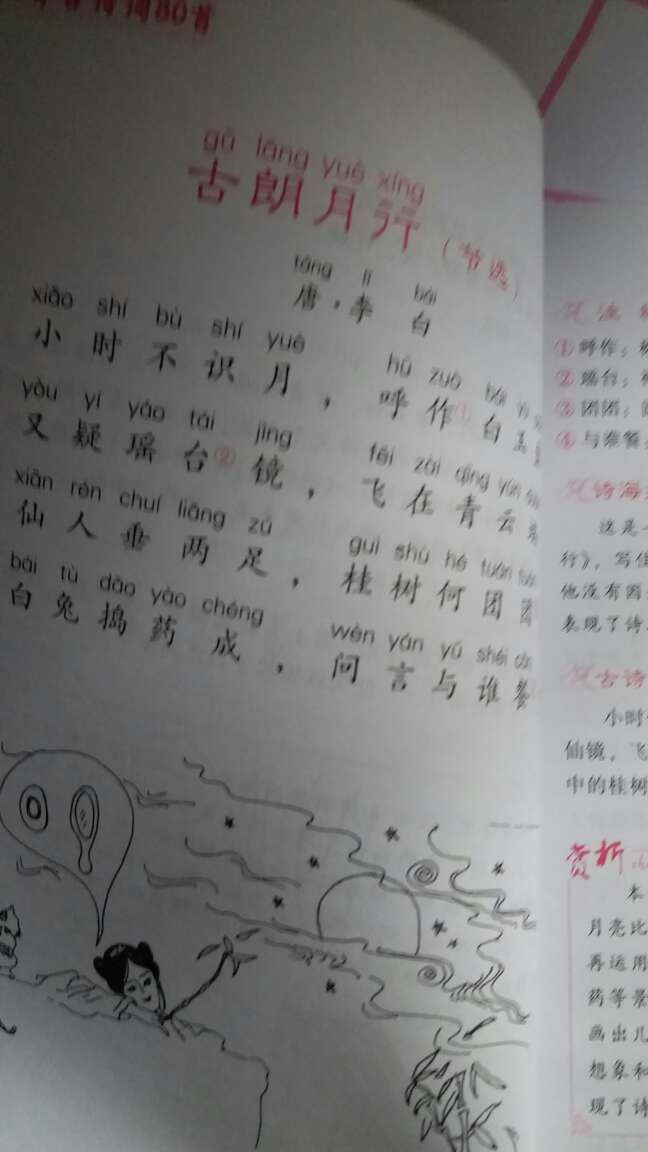 诗词80首
gǔ lǎng yuè xíng
古朗月行(节选)
táng lǐ bái
唐·李白
xiǎo shí bù shí yuè hū zuò bái
小时不识月,呼作①白玉
yòu yí yáo tái jìng fēi zài qīng yún
又疑瑶台②镜,飞在青云
xiān rén chuí liǎng zú guì shù hé tuán
仙人垂两足,桂树何团团
bái tù dǎo yào chéng wèn yán yǔ shéi cān
白兔捣药成,问言与谁餐
①呼作:
②瑶台:
③团团:
④与谁餐:
诗海
这是一
行》,写
他没有因
表现了诗
古诗
小时
仙镜,飞
中的桂树
赏析
本
月亮比
再运用
药等景
画出儿
想象和
现了诗